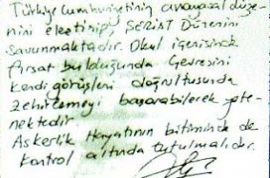 Türkiye Cumhuriyetinin anayasal düze-
nini eleştirip, ŞERİAT Düzenini
Savunmaktadır. Okul içerisinde
fırsat bulduğunda Çevresini
kendi görüşleri doğrultusunda
zehirlemeyi başarabilecek yete-
nektedir
Askerlik Hayatının bitiminde de
kontrol altında tutulmalıdır.